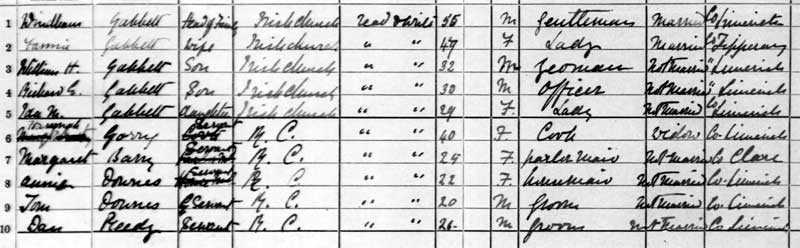 1 Windham Gabbett Head of Family Irish Church read & write 55 M Gentleman Married Co Limerick
2 Fannie Gabbett Wife Irish Church " " 47 F Lady Married Co Tipperary
3 William H. Gabbett Son Irish Church " " 32 M Yeoman Not Married " Limerick
4 Richard E. Gabbett Son Irish Church " " 30 M Officer Not Married " Limerick
5 M. Gabbett daughter Irish Church " " 29 F. Lady Not Married Co Limerick
6 Garry Servant R. C. " " 40 F Cook Widow Co Limerick
7 Margaret Barry Servant R. C. " " 24 F. parlor Maid Not Married Co Clare
8 Annie Downes Servant R. C. " " 22 F. Not Married Co Limerick
9 Tom Downes Servant R. C. " " 20 M Groom Not Married Co Limerick
10 Dan Reedy Servant R. C. " " 26 M Groom Not Married Co Limerick